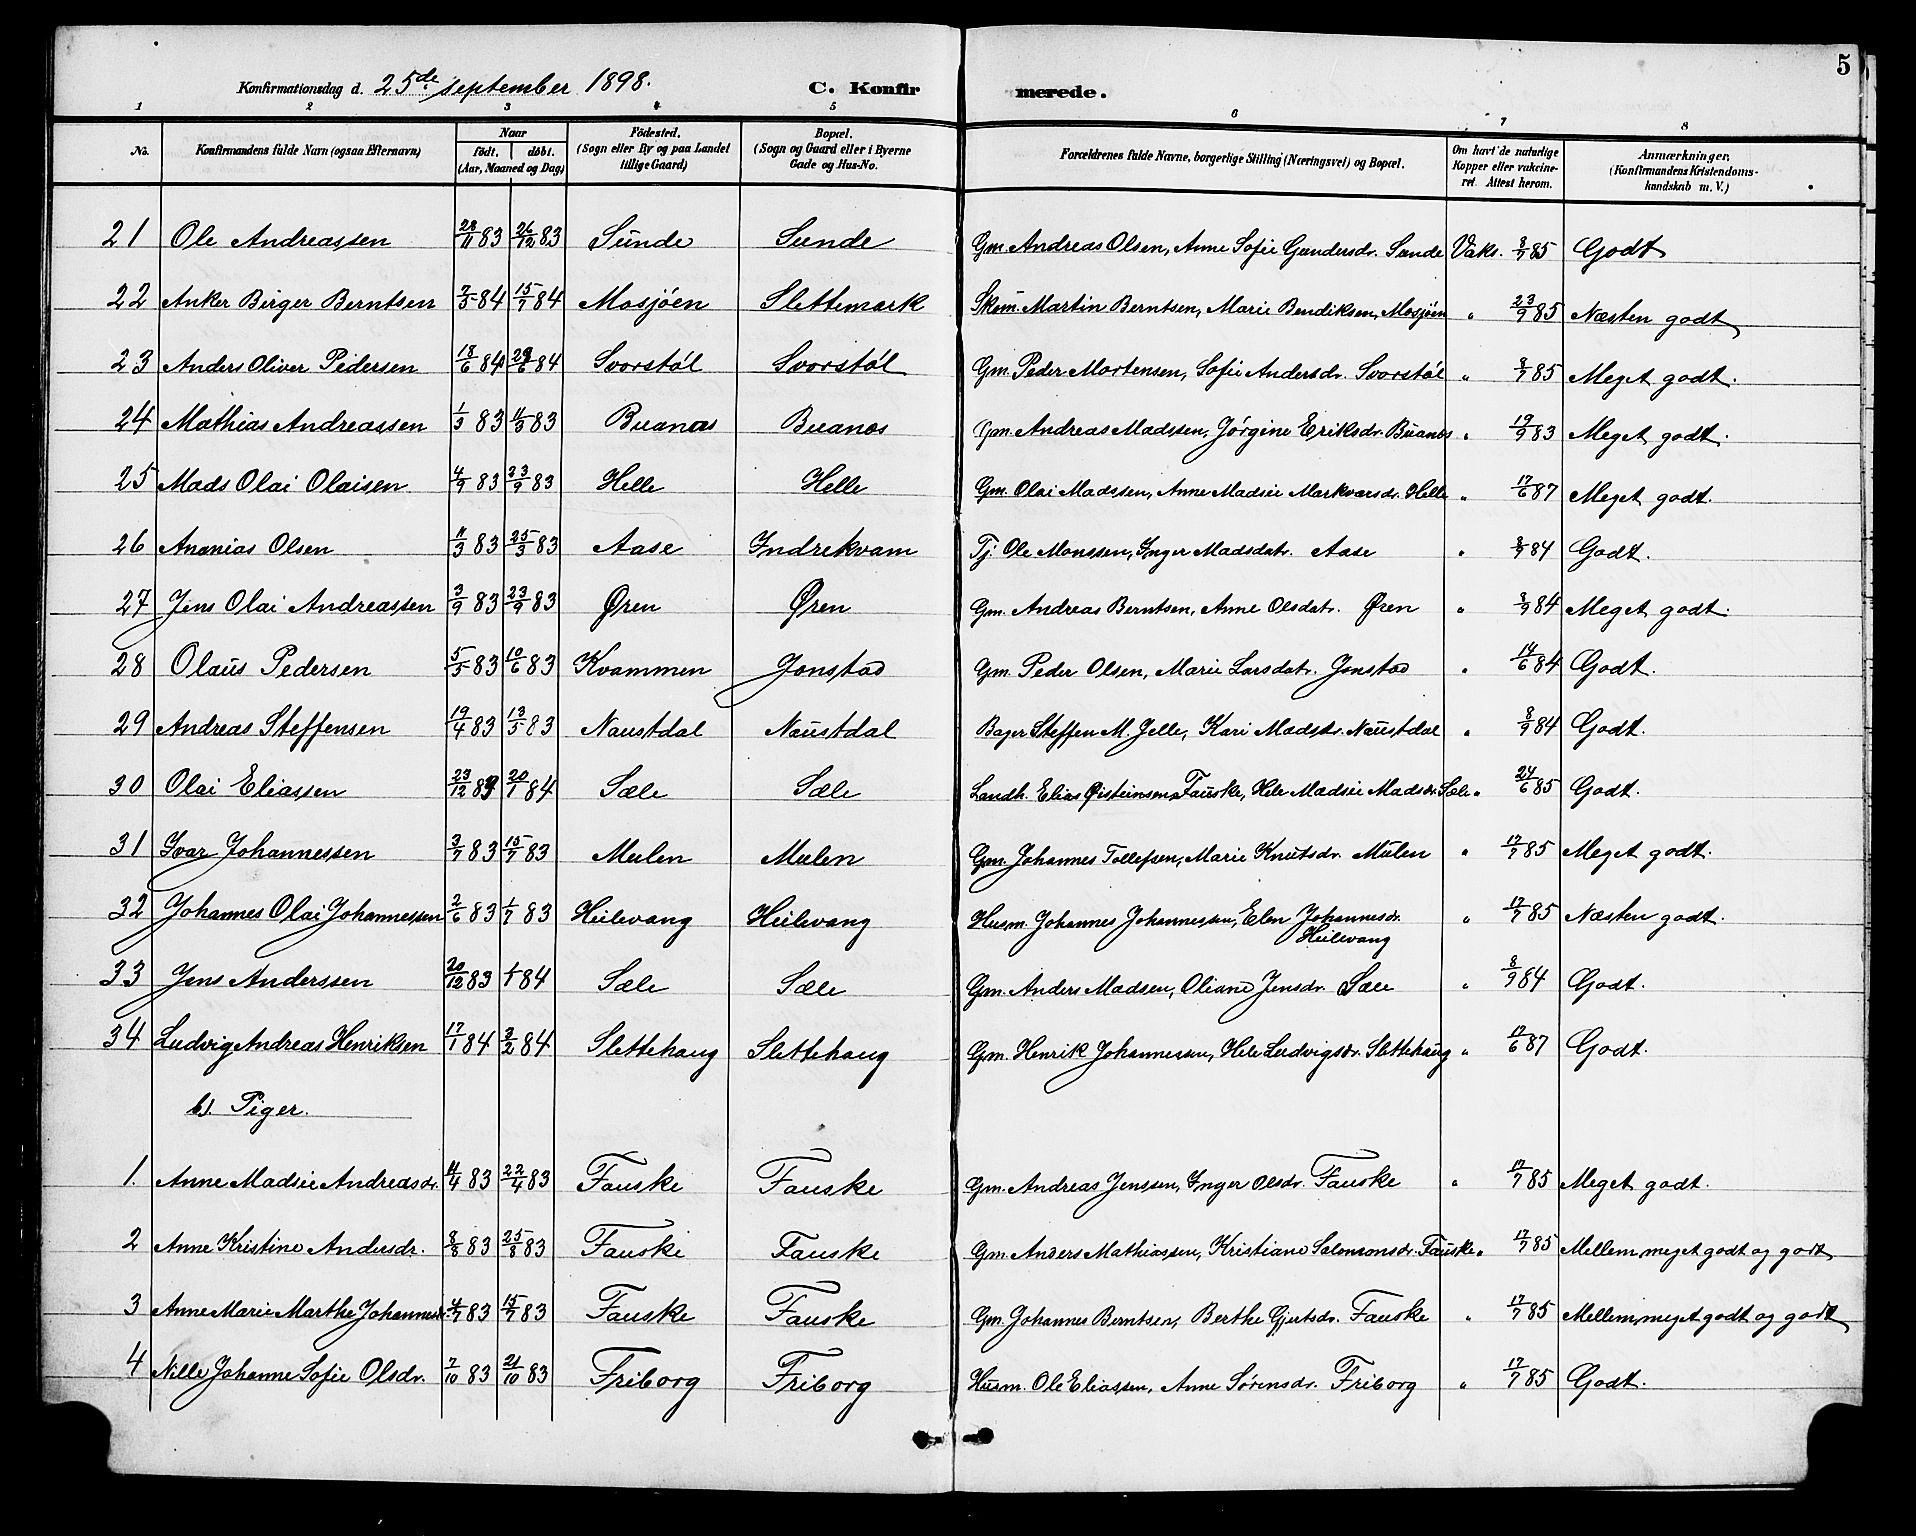 5
Konfirmationsdag d. 25de september 1898. C. Konfir merede.
1 2 3 4 5 6 7 8
No. Konfirmandens fulde Navn (ogsaa Efternavn) Naar født. døbt. (Aar, Maaned og Dag) Fødested. (Sogn eller By og paa Landet tillige Gaard) Bopæl. (Sogn og Gaard eller i Byerne Gade og Hus-No. Forældrenes fulde Navne, borgerlige Stilling (Næringsvei) og Bopæl. Om havt de naturlige Kopper eller vakcineret. Attest herom. Anmærkninger. (Konfirmandens Kristendomskundskab m. V.)
21 Ole Andreassen 28/11 83 26/12 83 Sunde Sunde Gm. Andreas Olsen, Anne Sofie Gundersdr. Sunde Vaks. 8/7 85 Godt
22 Anker Birger Berntsen 7/5 84 15/7 84 Mosjøen Slettemark Skom. Martin Berntsen, Marie Bendiksen, Mosjøen " 23/9 85 Næsten godt
23 Anders Oliver Pedersen 18/6 84 29/6 84 Svorstøl Svorstøl Gm. Peder Mortensen, Sofie Andersdr. Svorstøl " 8/7 85 Meget godt.
24 Mathias Andreassen 1/3 83 11/3 83 Buanæs Buanæs Gm. Andreas Madssen, Jørgine Eriksdr. Buanæs " 19/9 83 Meget godt.
25 Mads Olai Olaisen 4/9 83 23/9 83 Helle Helle Gm. Olai Madssen, Anne Madsie Markvarsdr. Helle " 17/6 87 Meget godt.
26 Ananias Olsen 11/3 83 25/3 83 Aase Indrekvam Tj. Ole Monssen, Inger Madsdatr. Aase " 8/9 84 Godt.
27 Jens Olai Andreassen 3/9 83 23/9 83 Øren Øren Gm. Andreas Berntsen, Anne Olsdatr. Øren " 8/9 84 Meget godt.
28 Olaus Pedersen 5/5 83 10/6 83 Kvammen Jonstad Gm. Peder Olsen, Marie Larsdatr. Jonstad " 14/6 84 Godt.
29 Andreas Steffensen 19/4 83 13/5 83 Naustdal Naustdal Bager Steffen M. Jelle, Kari Madsdr. Naustdal " 8/9 84 Godt.
30 Olai Eliassen 23/12 83 20/1 84 Sæle Sæle Landh. Elias Øisteinsen Fauske, Hele Madsie Madsdr. Sæle " 24/6 85 Godt.
31 Ivar Johannessen 3/7 83 15/7 83 Mulen Mulen Gm. Johannes Tollefsen, Marie Knutsdr. Mulen " 17/7 85 Meget godt.
32 Johannes Olai Johannessen 2/6 83 1/7 83 Heilevang Heilevang Husm. Johannes Johannessen, Elen Johannesdr. " 17/7 85 Næsten godt.
Heilevang
33 Jens Anderssen 20/12 83 1/1 84 Sæle Sæle Gm. Anders Madsen, Oliane Jensdr. Sæle " 8/9 84 Godt.
34 Ludvig Andreas Henriksen 17/1 84 3/2 84 Slettehaug Slettehaug Gm. Henrik Johannessen, Hele Ludvigsdr. Slettehaug " 17/6 87 Godt.
b). Piger.
1. Anne Madsie Andreasdr. 11/4 83 22/4 83 Fauske Fauske Gm. Andreas Jenssen, Inger Olsdr. Fauske " 17/7 85 Meget godt.
2 Anne Kristine Andersdr. 8/8 83 25/8 83 Fauske Fauske Gm. Anders Mathiassen, Kristiane Salomonsdr. Fauske " 17/7 85 Mellem meget godt og godt
3 Anne Marie Marthe Johannesdr. 4/7 83 15/7 83 Fauske Fauske Gm. Johannes Berntsen, Berthe Gjertsdr. Fauske " 17/7 85 Mellem meget godt og godt
4 Nille Johanne Sofie Olsdr. 7/10 83 21/10 83 Friborg Friborg Husm. Ole Eliassen, Anne Sørensdr. Friborg " 17/7 85 Godt.